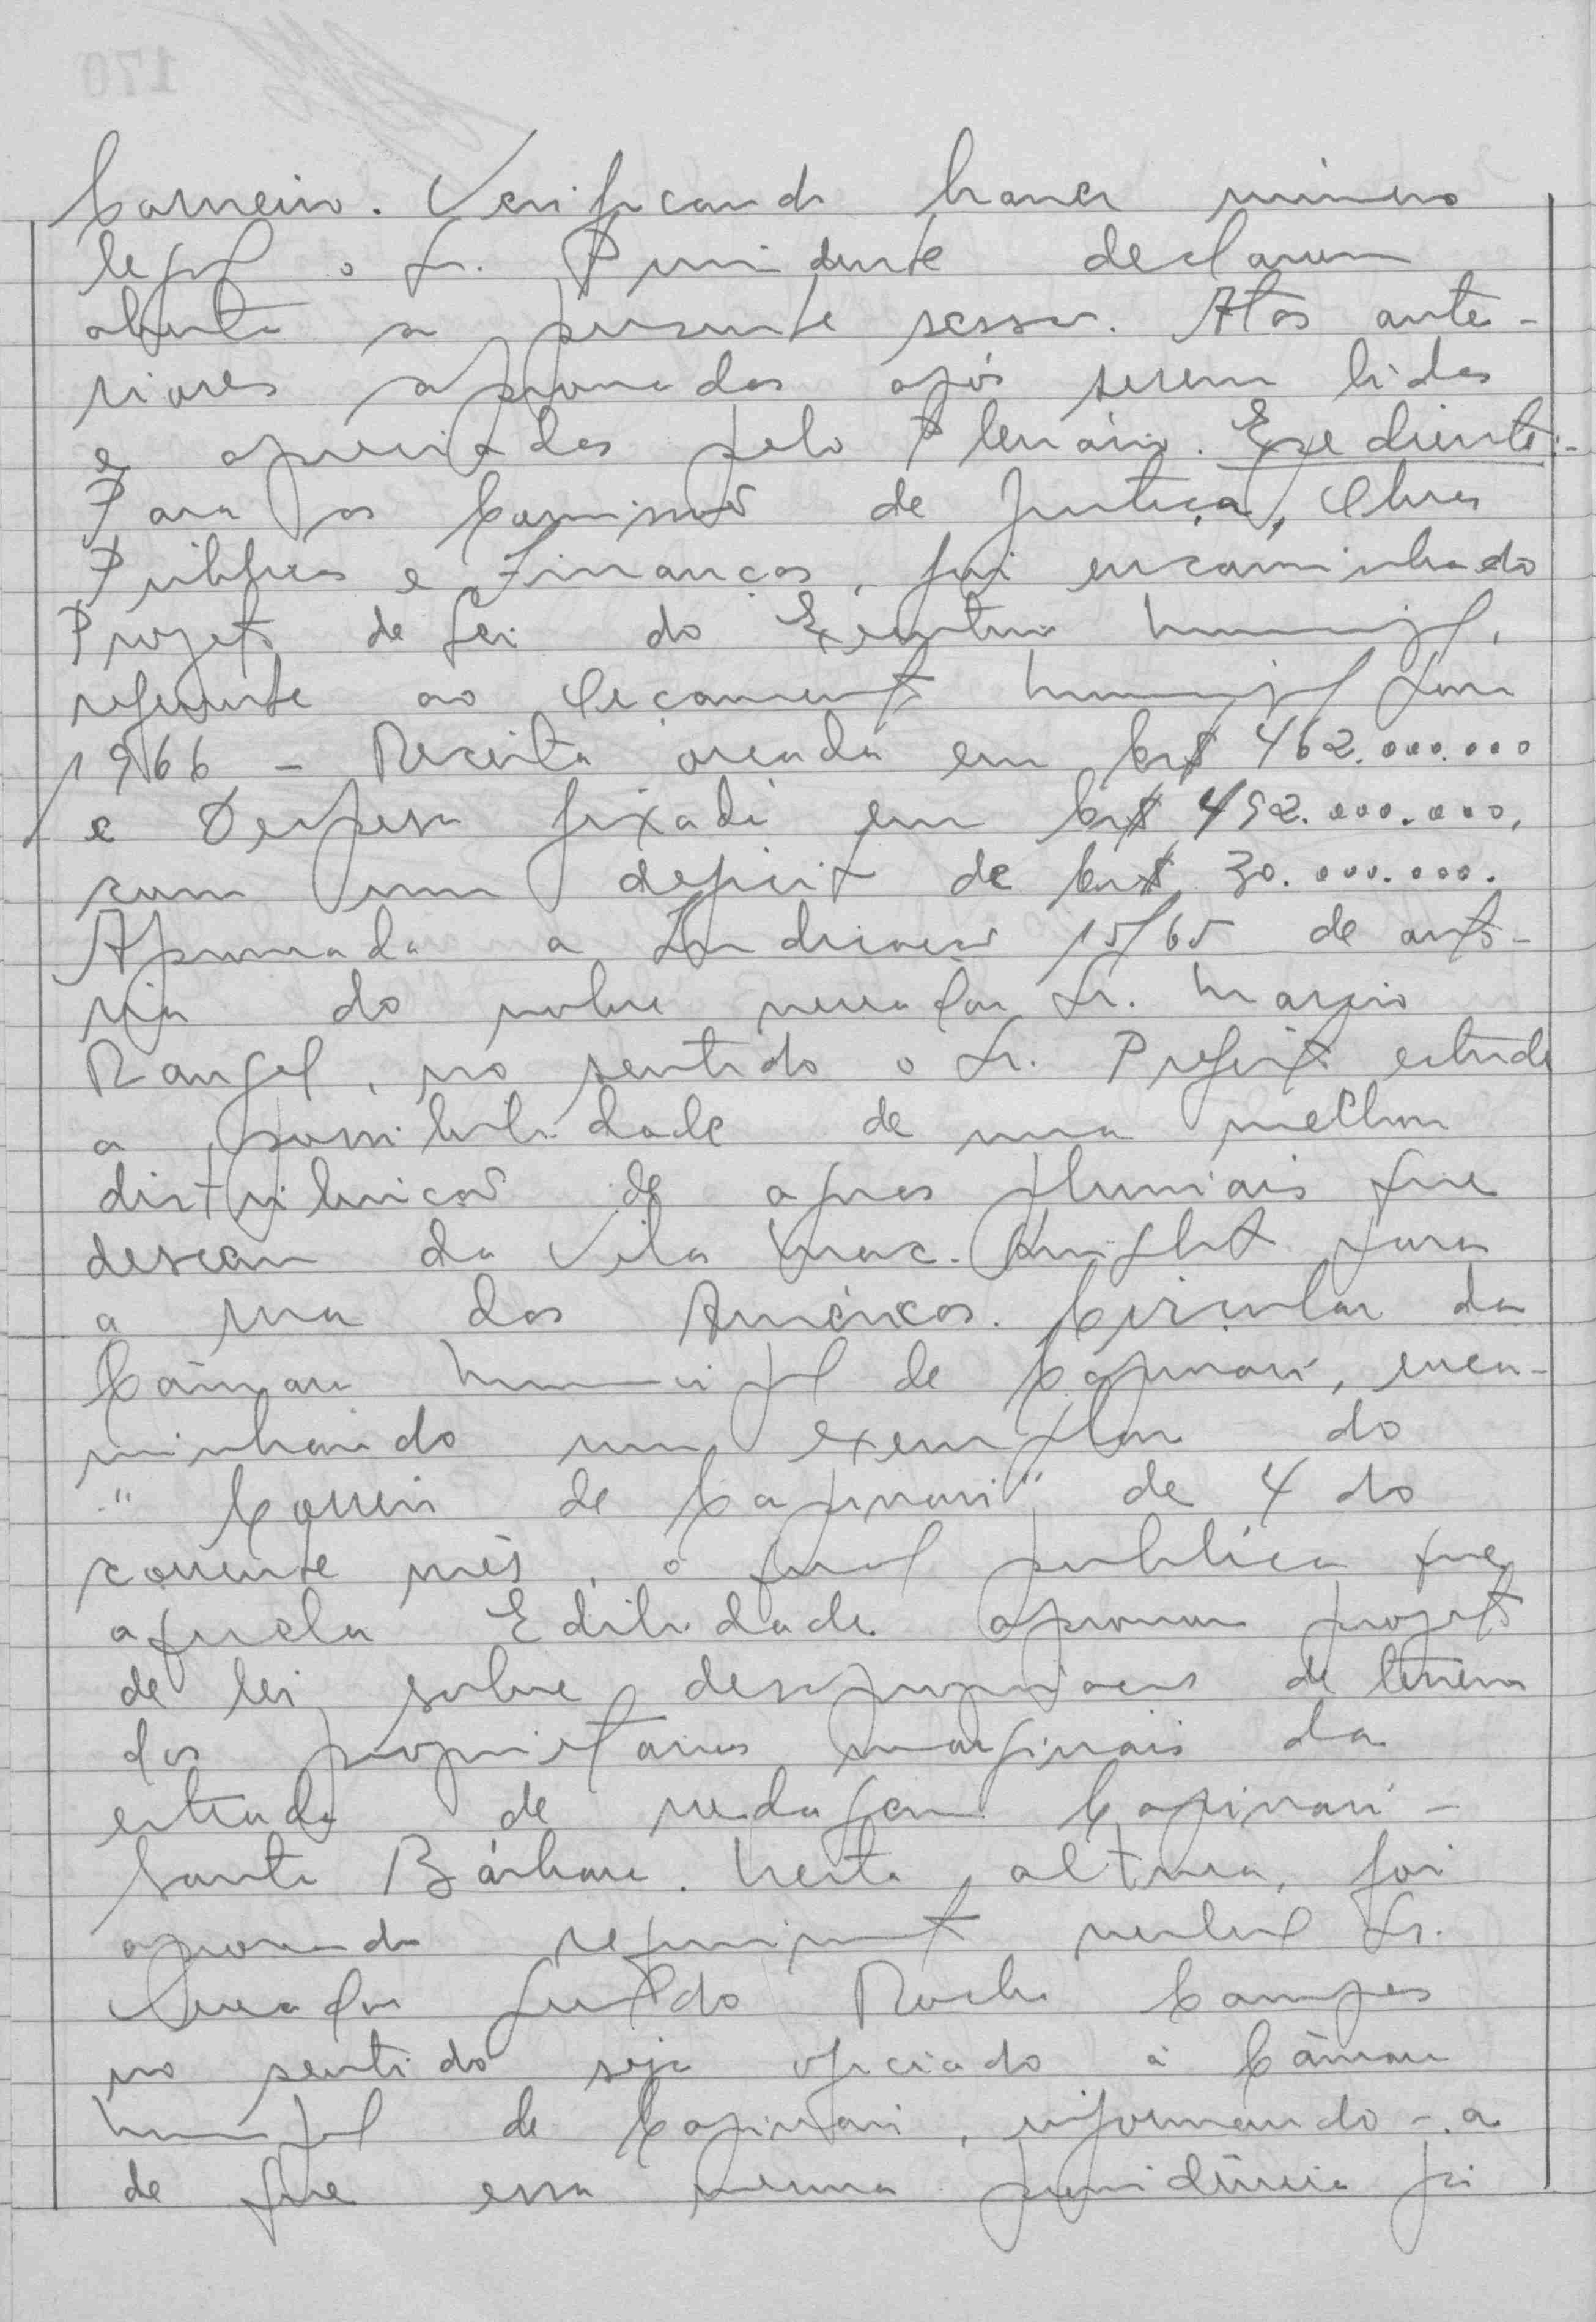 Carneiro. Verificando haver número
legal o Sr. Presidente declarou
aberta a presente sessão. Atas ante-
riores aprovadas após serem lidas
e apreciadas pelo Plenário. Expediente:-
Para as Comissões de Justiça, Obras
Públicas e Finanças, foi encaminhado
Projeto de Lei do Executivo Municipal,
referente ao Orçamento Municipal para
1966 - Receita orçada em Cr$ 462.000.000
e Despesa fixada em Cr$ 492.000.000,
com um deficit de Cr$ 30.000.000.
Aprovada a Indicação 15/65 de auto-
ria do nobre vereador Sr. Marcio
Rangel, no sentido o Sr. Prefeito estude
a possibilidade de uma melhor
distribuição de aguas pluviais que
descem da Vila Mac-Knight para
a rua das Américas. Circular da
Câmara Municipal de Capivari, enca-
minhando um exemplar do
"Correio de Capivari" de 4 do
corrente mês, o qual publica que
aquela Edilidade aprovou projeto
de lei sobre desapropriações de terrenos
dos proprietarios marginais da
estrada de rodagem Capivari -
Santa Bárbara. Nesta altura, foi
aprovado requerimento verbal Sr.
Vereador Geraldo Rocha Campos
no sentido seja oficiado à Câmara
Municipal de Capivari, informando-a
de que essa mesma providência já